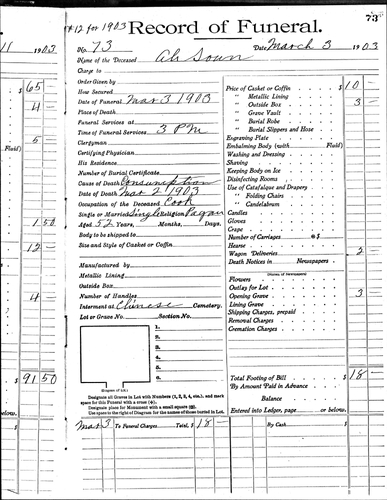 73
# 12 for 1903 Record of Funeral.
No. 73 Date March 3 1903
Name of the Deceased Ah Soun
Charge to
Order Given by
How Secured
Date of Funeral Mar 3 1903
Place of Death
Funeral Services at
Time of Funeral Services 3 PM
Clergyman
Certifying Physician
His Residence
Number of Burial Certificate
Cause of Death Consumption
Date of Death Mar 2 1903
Occupation of the Deceased Cook
Single or Married Single Religion Pagan
Aged 52 Years, Months, Days.
Body to be shipped to
Size and Style of Casket or Coffin
Manufactured by
Metallic Lining
Outside Box
Number of Handles
Interment at Chinese Cemetery.
Lot or Grave No. Section No.
1.
2.
3.
4.
5.
6.
(Diagram of Lot.)
Designate all Graves in Lot with Numbers (1, 2, 3, 4, etc.), and mark
space for this Funeral with a cross
Designate place for Monument with a small square
Use the space to the right of Diagram for the names of those buried in Lot.
Mar 3 To Funeral Charges Total, $ 18 —
Price of Casket or Coffin $ 10 —
" Metallic Lining
" Outside Box 3 —
" Grave Vault
" Burial Robe
" Burial Slippers and Hose
Engraving Plate
Embalming Body (with Fluid)
Washing and Dressing
Shaving
Keeping Body on Ice
Disinfecting Rooms
Use of Catafalque and Drapery
" Folding Chairs
" Candelabrum
Candles
Gloves
Crape
Number of Carriages @$
Hearse
Wagon Deliveries 2
Death Notices in Newspapers
(Names of Newspapers)
Flowers
Outlay for Lot
Opening Grave 3 —
Lining Grave
Shipping Charges, prepaid
Removal Charges
Cremation Charges
Total Footing of Bill $ 18 —
By Amount Paid in Advance
Balance
Entered into Ledger, page or below.
By Cash $
11 1903
$ 65 —
4 —
5
Fluid)
1 50
12 —
4 —
$ 91 50
below.
$